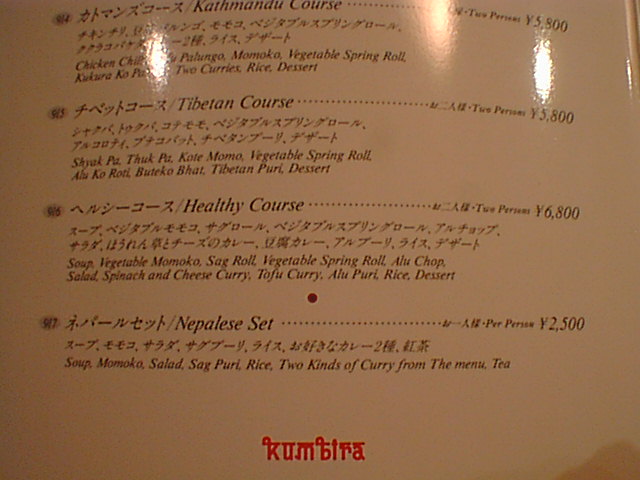 914 カトマンズコース/Kathmandu Course ・Two Persons ¥5,800
チキンチリ、 ルンゴ、モモコ、ベジタブルスプリングロール、
ククラコパケ ー2種、ライス、デザート
Chicken Chil Palungo, Momoko, Vegetable Spring Roll,
Kukura Ko Pa Two Curries, Rice, Dessert
915 チベットコース/Tibetan Course お二人様・Two Persons ¥5,800
シャクパ、トゥクパ、コテモモ、ベジタブルスプリングロール、
アルコロティ、ブテコバット、チベタンプーリ、デザート
Shyak Pa, Thuk Pa, Kote Momo, Vegetable Spring Roll,
Alu Ko Roti, Buteko Bhat, Tibetan Puri, Dessert
916 ヘルシーコース/Healthy Course お二人様・Two Persons ¥6,800
スープ、ベジタブルモモコ、サグロール、ベジタブルスプリングロール、アルチョップ、
サラダ、ほうれん草とチーズのカレー、豆腐カレー、アルプーリ、ライス、デザート
Soup, Vegetable Momoko, Sag Roll, Vegetable Spring Roll, Alu Chop,
Salad, Spinach and Cheese Curry, Tofu Curry, Alu Puri, Rice, Dessert
917 ネパールセット/Nepalese Set お一人様・Per Person ¥2,500
スープ、モモコ、サラダ、サグプーリ、ライス、お好きなカレー2種、紅茶
Soup, Momoko, Salad, Sag Puri, Rice, Two Kinds of Curry from The menu, Tea
kumbira